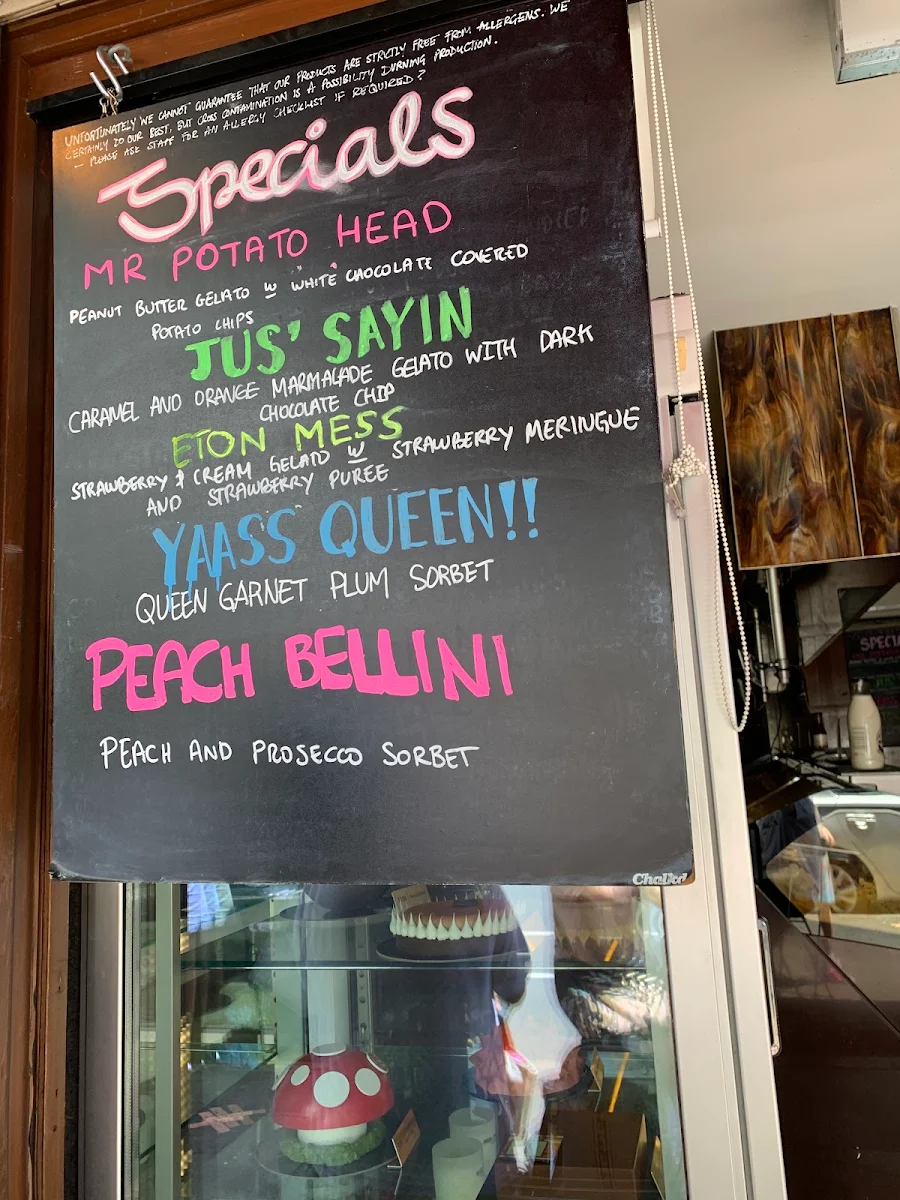 UNFORTUNATELY WE CANNOT GUARANTEE THAT OUR PRODUCTS ARE STRICTLY FREE FROM ALLERGENS. WE
CERTAINLY DO OUR BEST, BUT CROSS CONTAMINATION IS A POSSIBILITY DURNING PRODUCTION.
— PLEASE ASK STAFF FOR AN ALLERGY CHECKLIST IF REQUIRED?
Specials
MR POTATO HEAD
PEANUT BUTTER GELATO W WHITE CHOCOLATE COVERED
POTATO CHIPS
JUS' SAYIN
CARAMEL AND ORANGE MARMALADE GELATO WITH DARK
CHOCOLATE CHIP
ETON MESS
STRAWBERRY & CREAM GELATO W STRAWBERRY MERINGUE
AND STRAWBERRY PUREE
YAASS QUEEN!!
QUEEN GARNET PLUM SORBET
PEACH BELLINI
PEACH AND PROSECCO SORBET
Chalkd
SPECIA